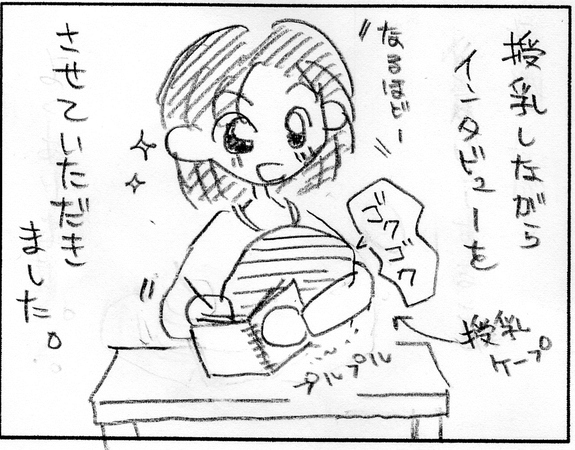 授乳しながら
インタビューを
なるほどー
ゴクゴク
授乳
ケープ
プルプル
させていただき
ました。